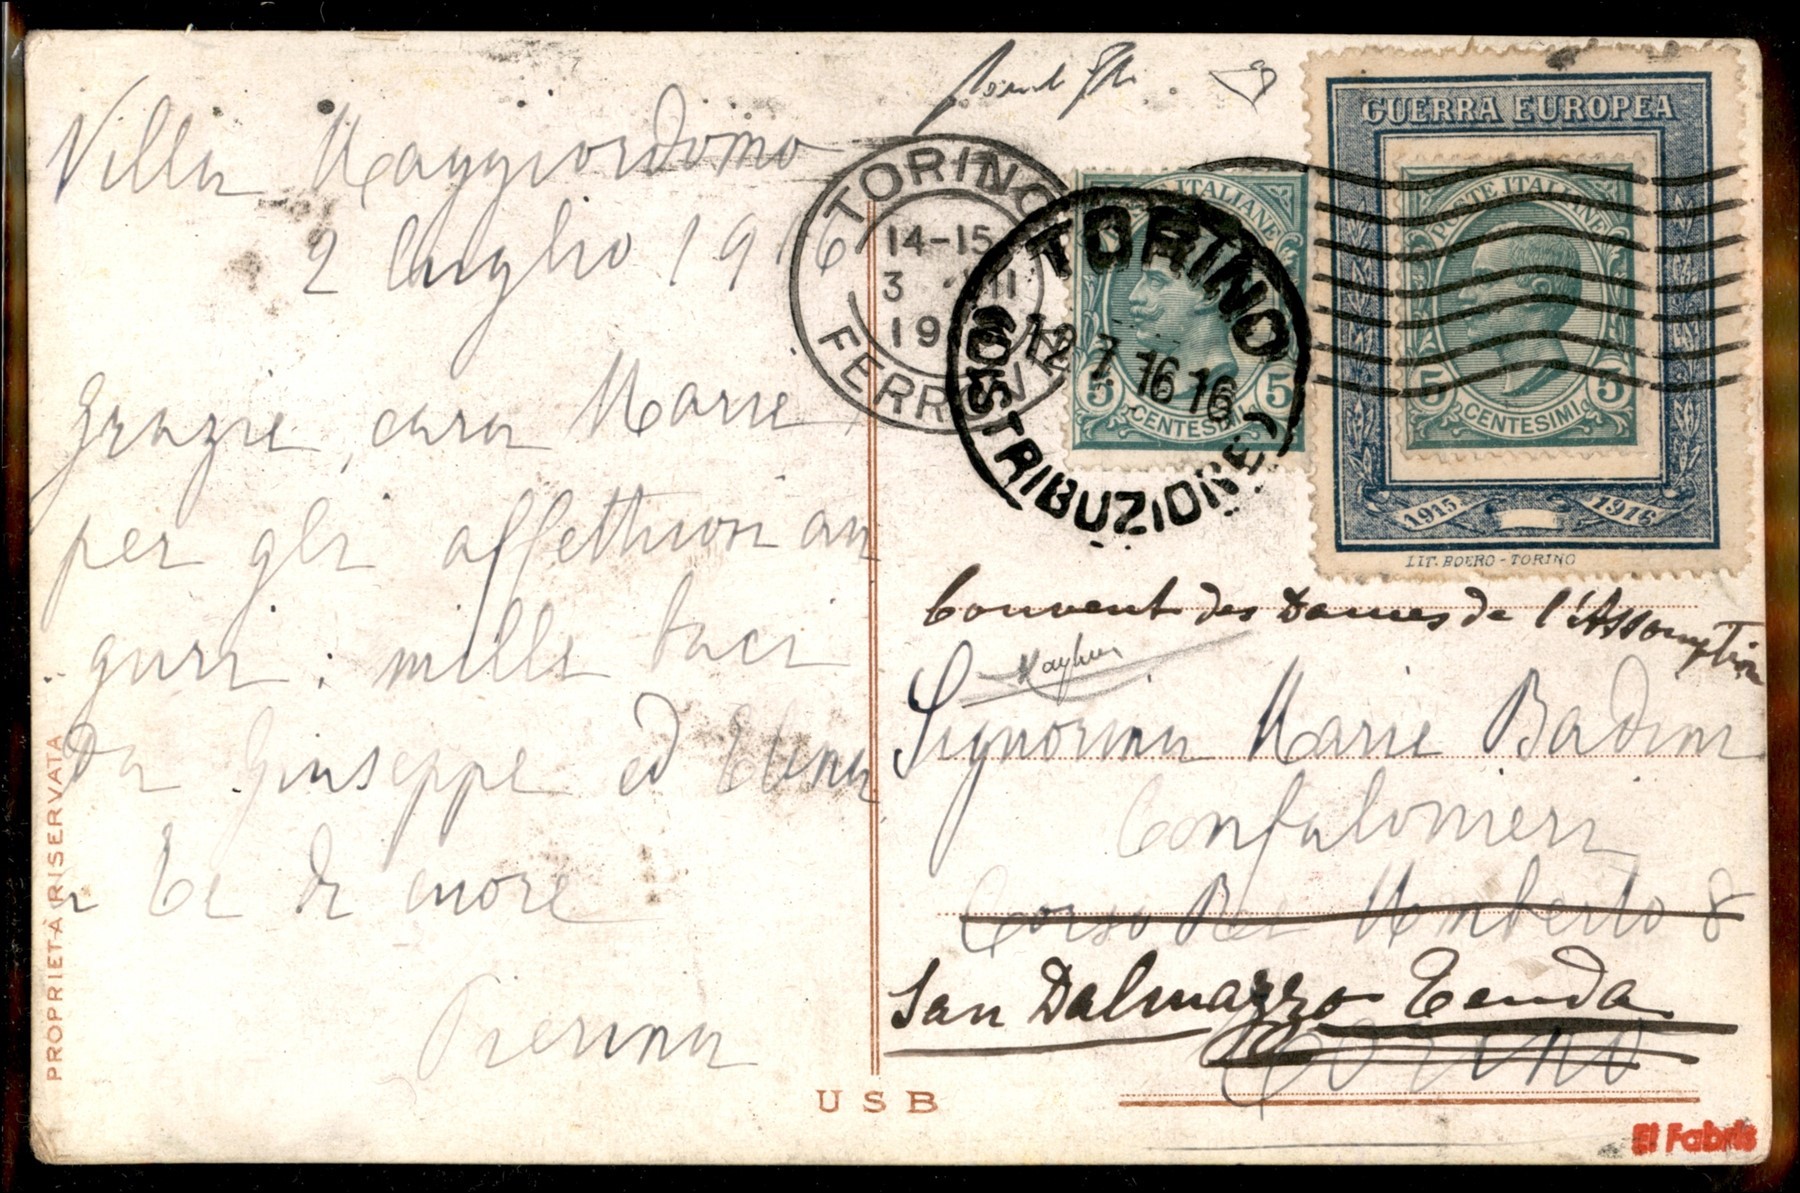 Villa Maggiordomo
2 luglio 1916
Grazie, cara Marie,
per gli affettuosi au
guri: mille baci
da Giuseppe ed Elena
a te di cuore
Pierina
PROPRIETÀ RISERVATA
USB
TORINO
14-15
3 VII
19
FERROVIA
TORINO
12 7 16 16
(DISTRIBUZIONE)
POSTE ITALIANE
5 5
CENTESIMI
GUERRA EUROPEA
POSTE ITALIANE
5 5
CENTESIMI
1915 1916
LIT. BOERO - TORINO
Couvent des Dames de l'Assomption
Signorina Marie Badini
Confalonieri
Corso Re Umberto 8
San Dalmazzo Tenda
Torino
El Fabris